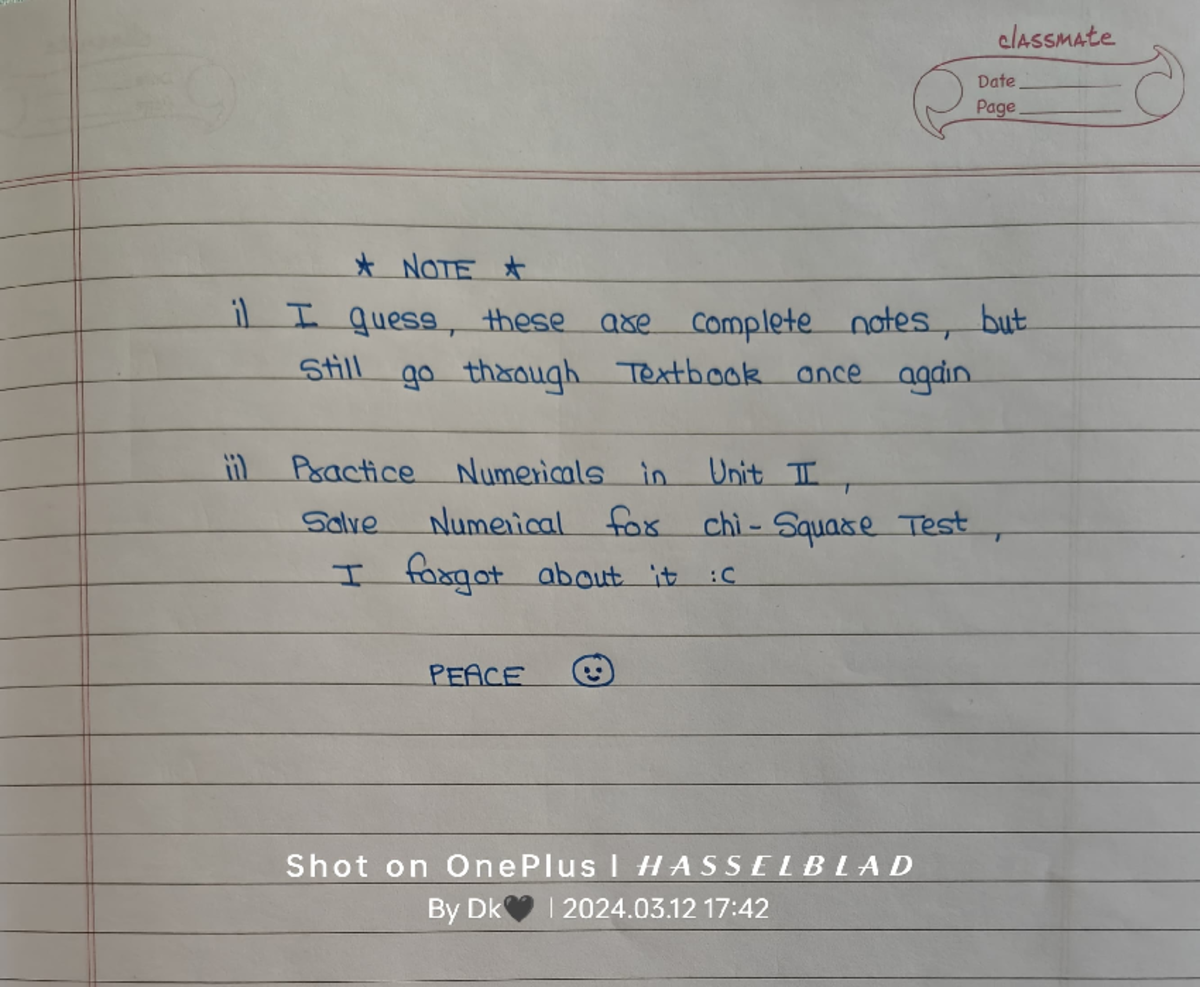 classmate
Date
Page
★ NOTE ★
i) I guess, these are complete notes, but
still go through Textbook once again
ii) Practice Numericals in Unit II,
Solve Numerical for chi-Square Test,
I forgot about it :c
PEACE ☺
Shot on OnePlus | HASSELBLAD
By Dk🖤 | 2024.03.12 17:42